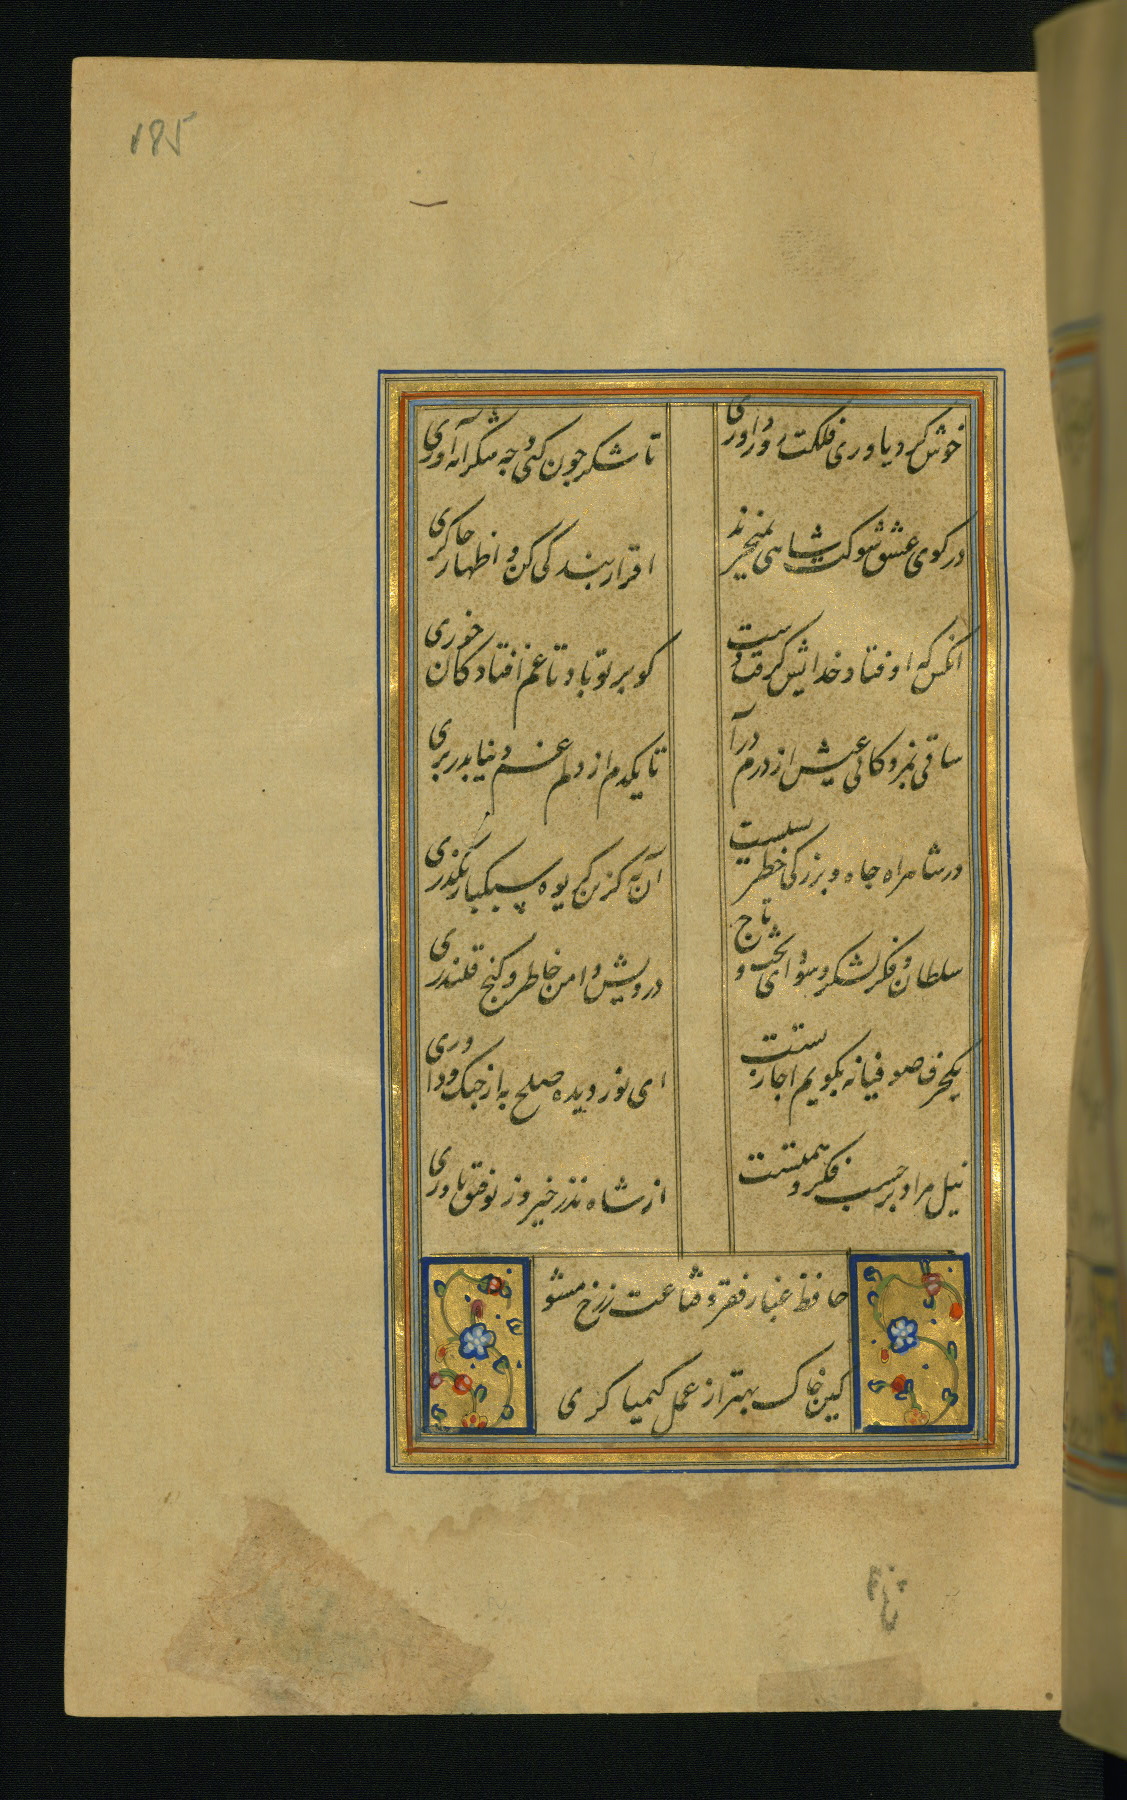 185
خوش کرد یاوری فلکت روز داوری
تا شکر چون کنی و چه شکرانه آوری
در کوی عشق شوکت شاهی نمیخرند
اقرار بندکی کن و اظهار چاکری
انکس که اوفتاد خدایش کرفت دست
کو بر تو باد تا غم افتادکان خوری
ساقی بمژدکانی عیش از درم درآ
تا یکدم از دلم غم دنیا بدر بری
در شاهراه جاه و بزرکی خطر بسیست
آن به کزین کریوه سبکبار بکذری
سلطان و فکر لشکر و سودای تخت و تاج
درویش و امن خاطر و کنج قلندری
یکحرف صوفیانه بکویم اجازتست
ای نور دیده صلح به از جنک و داوری
نیل مراد بر حسب فکر و همتست
از شاه نذر خیر و ز توفیق یاوری
حافظ غبار فقر و قناعت ز رخ مشو
کین خاک بهتر از عمل کیمیاکری